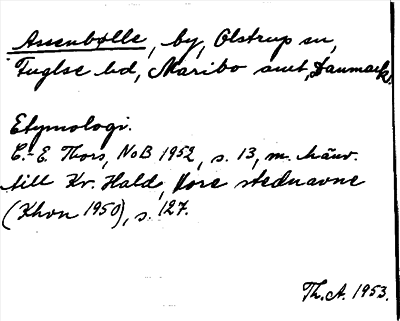 Assenbølle, by, Olstrup sn,
Fuglse hd, Maribo amt, Danmark.
Etymologi.
C.-E. Thors, NoB 1952, s. 13, m. hänv.
till Kr. Hald, Vore stednavne
(Khvn 1950), s. 127.
Th. A. 1953.